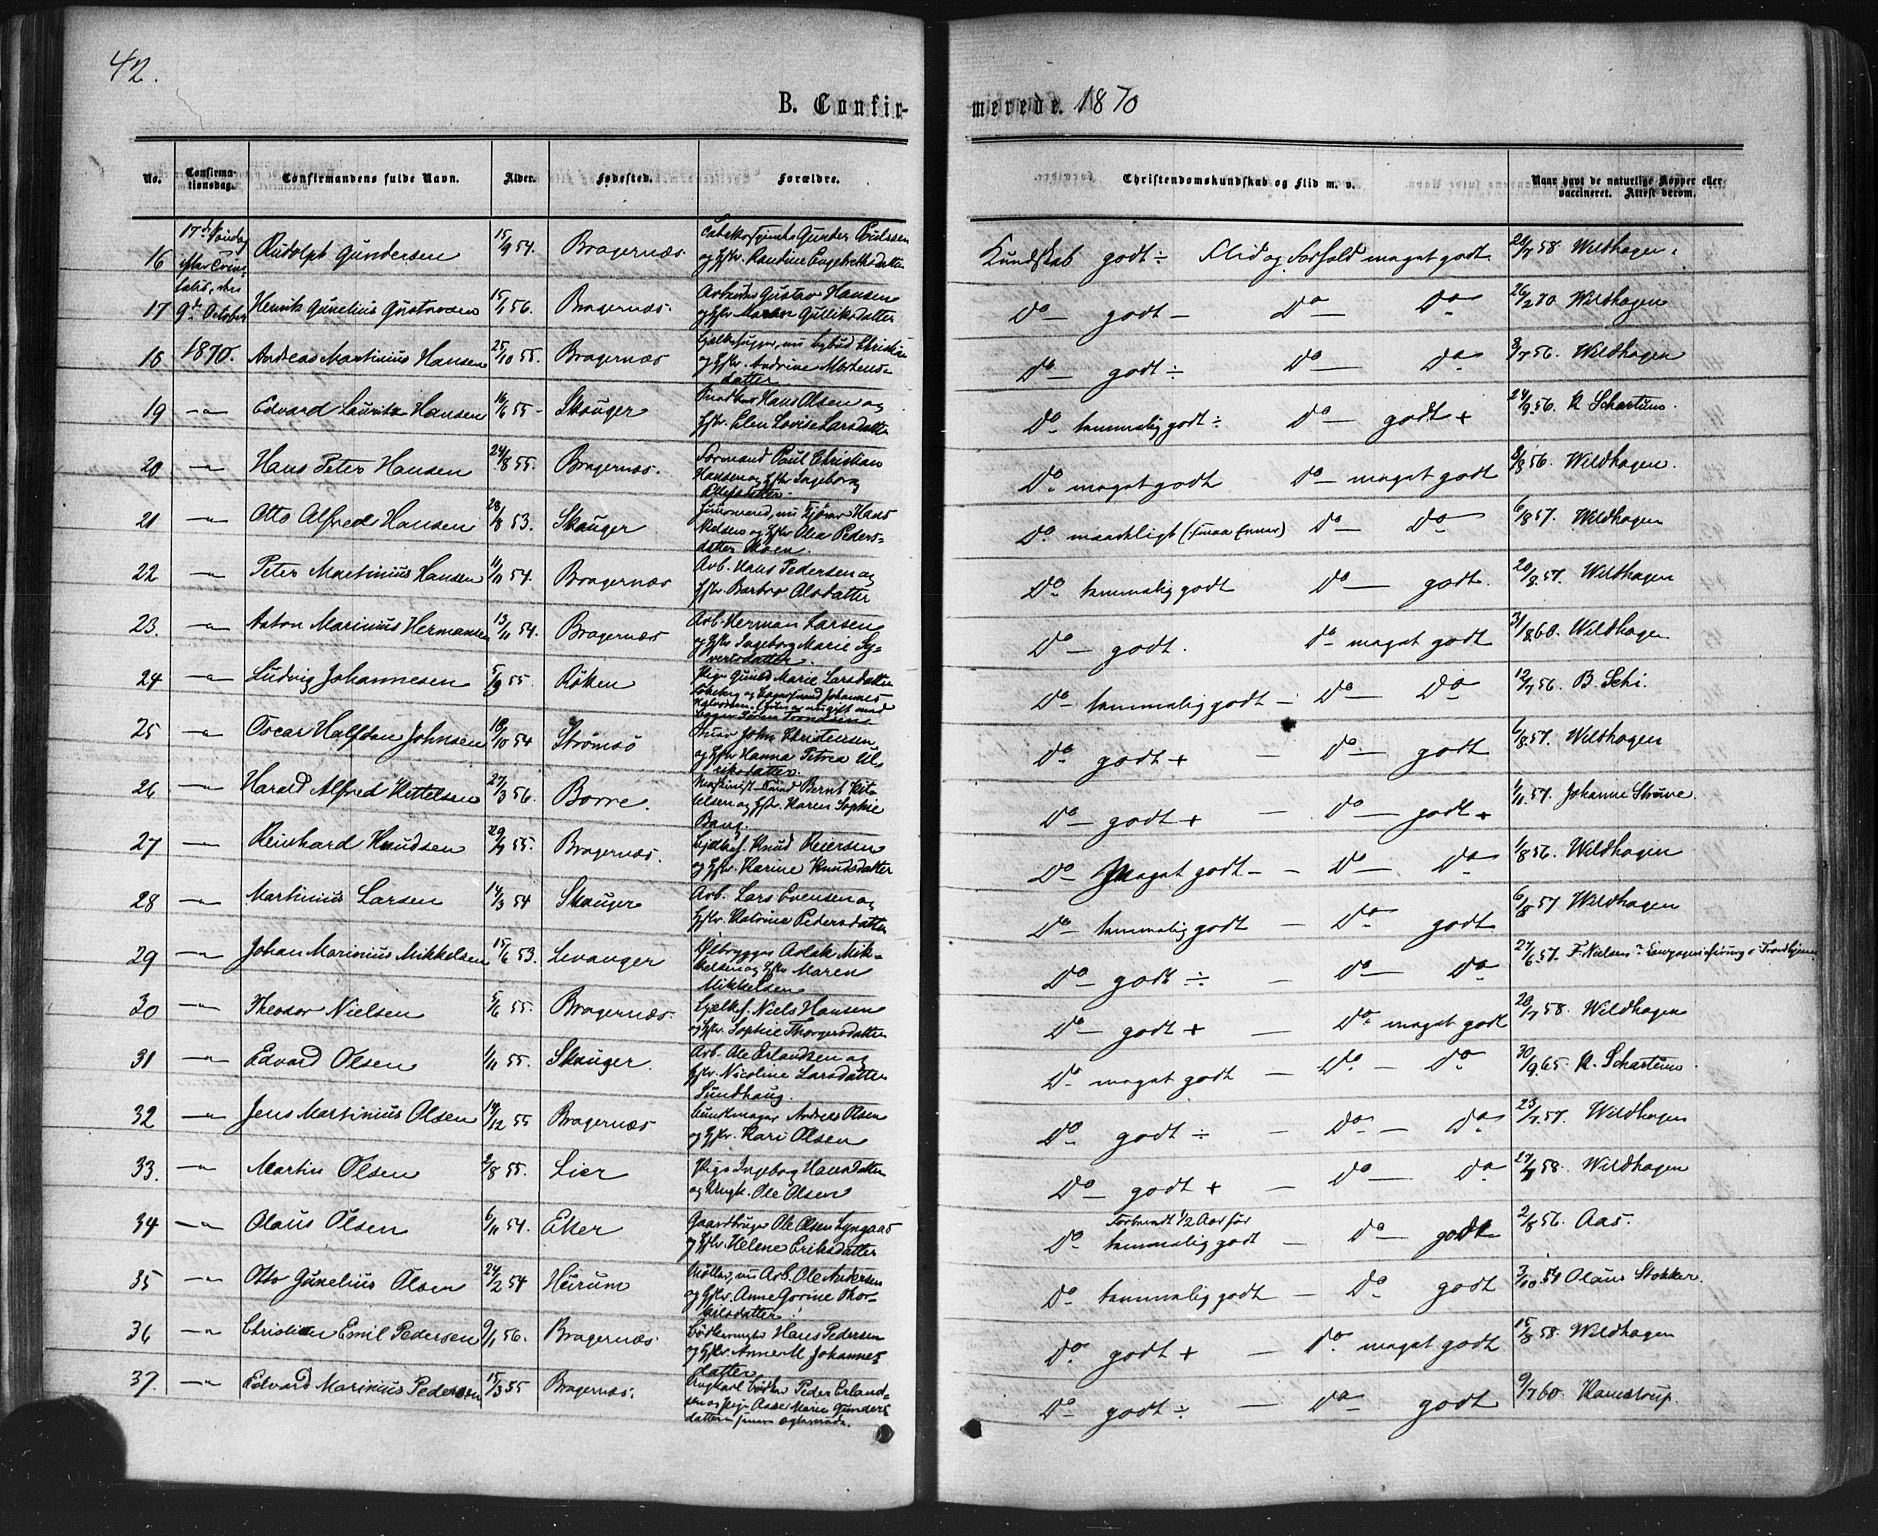 42.
B. Confir-
merede. 1870
No.
Confirma-
tionsdag.
Confirmandens fulde Navn.
Alder.
Fødested.
Forældre.
Christendomskundskab og Flid m. v.
Naar havt de naturlige Kopper eller
vaccineret. Attest derom.
17de Søndag
efter Trini
tatis, den
9de October
1870.
16 Rudolph Gundersen 15/9 54. Bragernæs. Gunder Poulssen
og Hst. Randine Engebretsdatter
Kundskab godt ÷ Flid og Forhold meget godt 58 Wildhagen.
17 Henrik Gunelius Gustavsen 15/1 56. Bragernæs. Gustav Hansen
og Hst. Maren Gulliksdatter
Do — godt — Do — Do 26/2 70 Wildhagen
18 Andreas Martinius Hansen 25/10 55. Bragernæs nu Lybud Christian
og Hst. Andrine Mortens-
datter
Do — godt ÷ Do — Do 56. Wildhagen
19 —"— Edvard Lauritz Hansen 16/6 55 Skouger Hans Olsen og
Hst. Elen Lovise Larsdatter
Do temmelig godt ÷ Do — godt + 24/9 56. R Schartum.
20 —"— Hans Peter Hansen 24/8 55. Bragernæs. Formand Paul Christian
Hansen og Hst. Ingeborg
Do meget godt Do — meget godt 56. Wildhagen.
21 —"— Otto Alfred Hansen 28/8 53. Skouger nu Hans
Nielsen og Hst. Olea Peders-
datter
Do maadeligt (smaa Evner) Do — Do 6/8 57. Wildhagen
22 —"— Peter Martinius Hansen 11/11 54. Bragernæs Arb. Hans Pedersen og
Hst. Barbro Olsdatter
Do temmelig godt Do — godt. 20/8 57. Wildhagen
23. —"— Anton Marinius Hermansen 13/11 54. Bragernæs Arb. Herman Larsen
og Hst. Ingeborg Marie Sy-
vertsdatter.
Do — godt. Do meget godt 31/8 60. Wildhagen
24 —"— Ludvig Johannesen 5/9 55. Røken Pige Gunild Marie Larsdatter
Johannes
Halvorsen. (hun er nu gift med
Søren Trondsen
Do temmelig godt — Do — Do 12/7 56. B. Schi.
25 —"— Oscar Halfdan Johnsen 18/10 54 Strømsø John Christensen
og Hst. Hanna Petrea Ul-
riksdatter.
Do — godt + — Do — godt 6/8 57. Wildhagen
26 —"— Harald Alfred Kittelsen 27/3 56. Borre. Maskinist Bernt Kit-
telsen og Hst. Karen Sophie
Bang.
Do — godt + — Do — godt + 1/11 57. Johanne Struve.
27 —"— Reinhard Knudsen 55. Bragernæs. Knud Reiersen
og Hst. Karine Knudsdatter
Do meget godt — — Do — Do 1/8 56. Wildhagen
28 —"— Martinius Larsen 14/3 54 Skouger Arb. Lars Evensen og
Hst. Katrine Pedersdatter
Do temmelig godt — Do — godt 6/8 57 Wildhagen
29 —"— Johan Marinius Mikkelsen 15/6 53. Levanger Aslak Mik-
kelsen og Hst. Maren
Mikkelsen
Do — godt ÷ — Do — Do 27/6 57. F. Nielsen Trondhjem
30 —"— Theodor Nielsen 5/6 55. Bragernæs. Niels Hansen
og Hst. Sophie Thorgersdatter
Do — godt + — Do meget godt 20/7 58. Wildhagen
31 —"— Edvard Olsen 1/11 55. Skouger. Arb. Ole Erlandsen og
Hst. Nicoline Larsdatter
Sundhaug.
Do meget godt — Do — Do 30/9 65. R. Schartum
32 —"— Jens Martinius Olsen 14/12 55 Bragernæs Buntmager Andreas Olsen
og Hst. Kari Olsen
Do godt ÷ — Do — Do 23/7 57. Wildhagen
33. —"— Martin Olsen 2/8 55. Lier Pige Ingeborg Hansdatter
og Ungk. Ole Olsen
Do — godt + — Do — Do 58. Wildhagen
34 —"— Olaus Olsen 6/11 54. Eker Gaardbruger Ole Olsen Lyngaas
og Hst. Helene Eriksdatter
Forberedt 1/2 Aar før
Do temmelig godt — Do — godt 2/8 56. Aas.
35 —"— Otto Gunelius Olsen 24/2 54 Hurum Møller, nu Arb. Ole Andersen
og Hst. Anne Gorine Thor-
kilsdatter
Do temmelig godt — Do godt 3/10 54 Olaus Stokker.
36 —"— Christian Emil Pedersen 9/1 56. Bragernæs. Hans Pedersen
og Hst. Anne M Johannes
datter
Do godt + — Do meget godt 15/8 58. Wildhagen
37 —"— Edvard Marinius Pedersen 15/3 55 Bragernæs. Ungkarl Bødker Peder Erland-
sen og Pige Aase Marie Gunders
datter
Do godt ÷ — Do godt 9/7 60. Kamstrup.